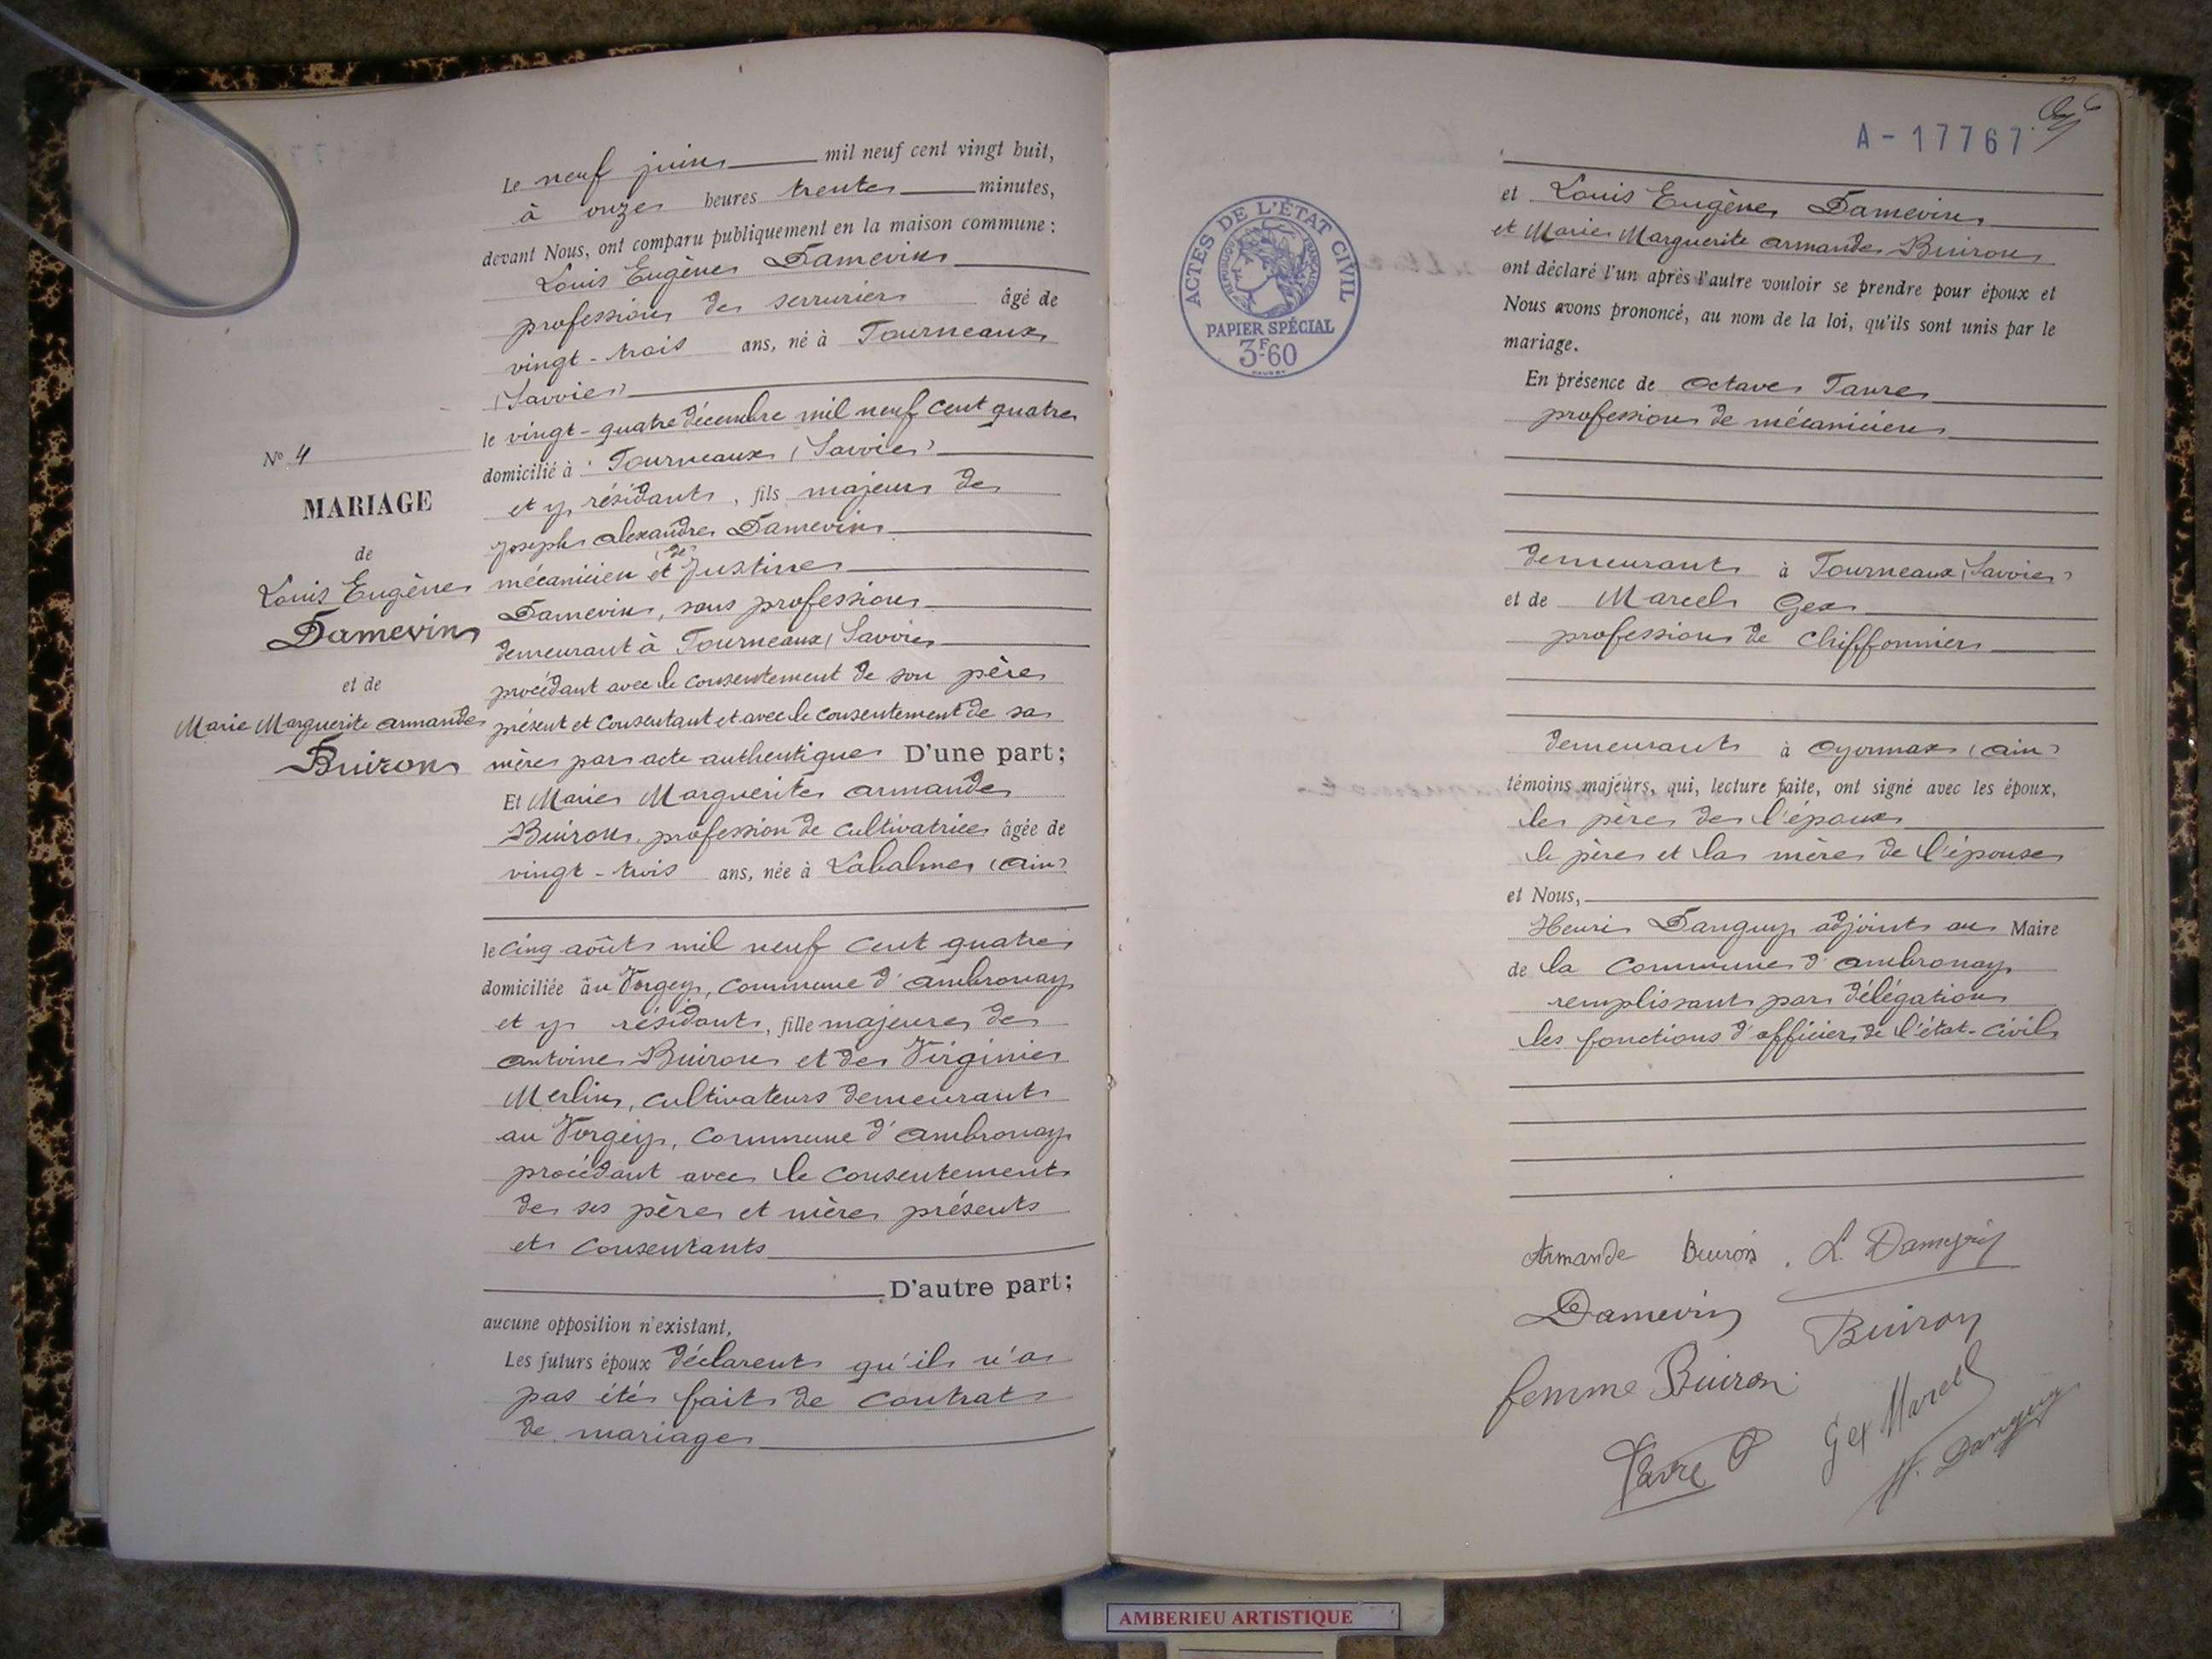 Le neuf juin mil neuf cent vingt huit,
à onze heures trente minutes,
devant Nous, ont comparu publiquement en la maison commune :
Louis Eugène Damevin
profession de serrurier âgé de
vingt-trois ans, né à Fourneaux
(Savoie)
le vingt-quatre décembre mil neuf cent quatre
domicilié à Fourneaux (Savoie)
et y résidant, fils majeur de
Joseph Alexandre Damevin
mécanicien et (de) Justine
Damevin, sans profession
demeurant à Fourneaux (Savoie
procédant avec le consentement de son père
présent et consentant et avec le consentement de sa
mère par acte authentique D'une part ;
Et Marie Marguerite Armande
Buiron, profession de cultivatrice âgée de
vingt-trois ans, née à Labalme (Ain)
le cinq août mil neuf cent quatre
domiciliée au Vorgey, commune d'Ambronay
et y résidant, fille majeure de
Antoine Buiron et de Virginie
Merlin, cultivateurs demeurant
au Vorgey, commune d'Ambronay
procédant avec le consentement
de ses père et mère présents
et consentants
D'autre part ;
aucune opposition n'existant,
Les futurs époux déclarent qu'il n'a
pas été fait de contrat
de mariage
N° 4
MARIAGE
de
Louis Eugène
Damevin
et de
Marie Marguerite Armande
Buiron
A-17767
et Louis Eugène Damevin
et Marie Marguerite Armande Buiron
ont déclaré l'un après l'autre vouloir se prendre pour époux et
Nous avons prononcé, au nom de la loi, qu'ils sont unis par le
mariage.
En présence de Octave Favre
profession de mécanicien
demeurant à Fourneaux (Savoie)
et de Marcel Gex
profession de chiffonnier
demeurant à Oyonnax (Ain)
témoins majeurs, qui, lecture faite, ont signé avec les époux,
le père de l'époux
le père et la mère de l'épouse
et Nous,
Henri Danguy adjoint au Maire
de la commune d'Ambronay
remplissant par délégation
les fonctions d'officier de l'état-civil
Armande Buiron. L. Damevin
Damevin
Buiron
femme Buiron
Gex Marcel
Favre O
H. Danguy
ACTES DE L'ÉTAT CIVIL
RÉPUBLIQUE FRANÇAISE
PAPIER SPÉCIAL
3F60
AMBERIEU ARTISTIQUE